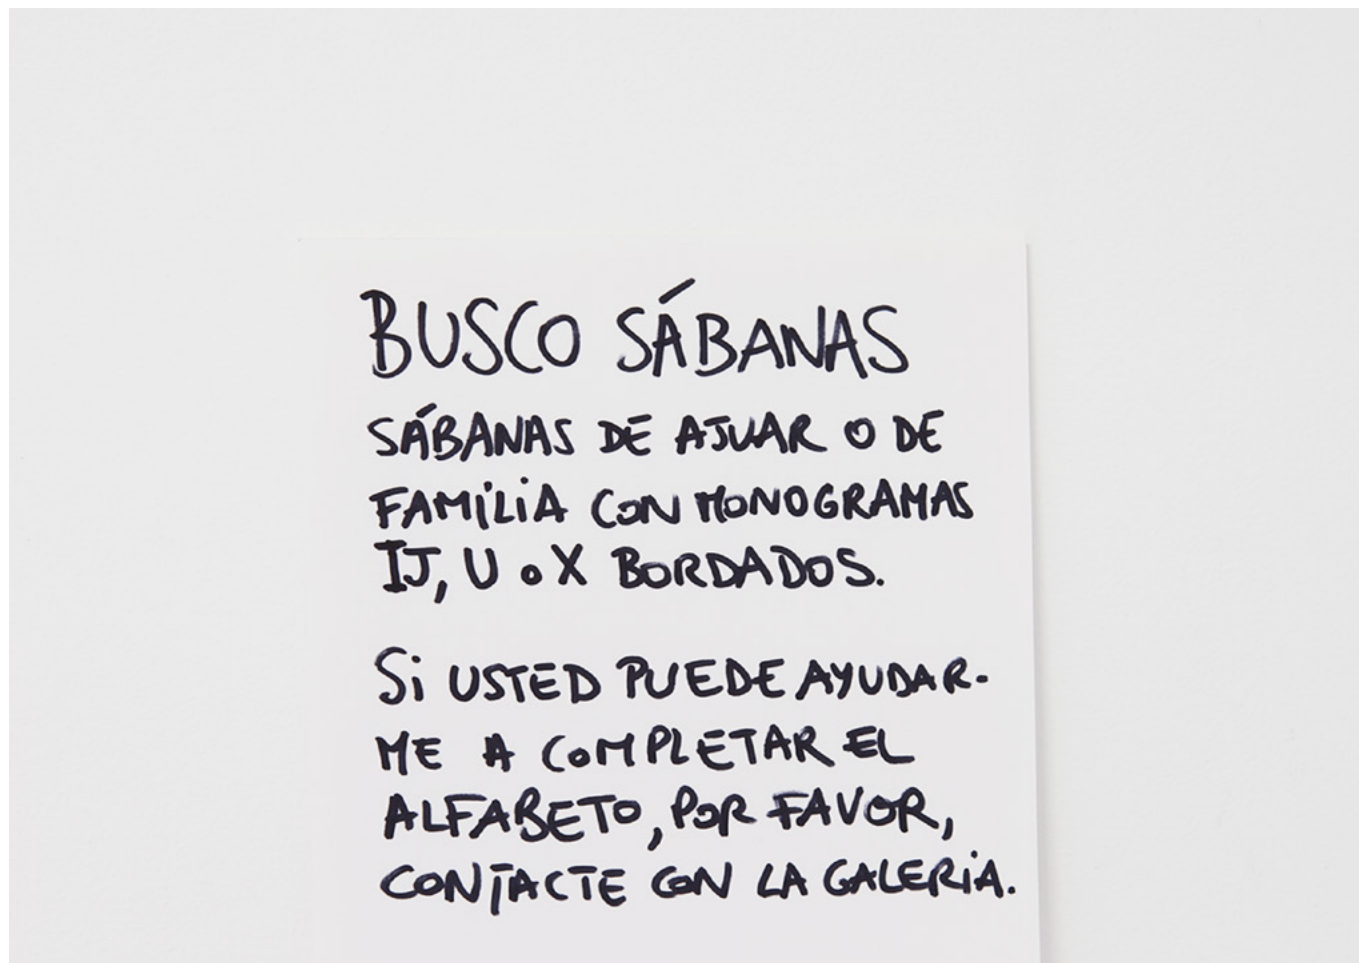 BUSCO SÁBANAS
SÁBANAS DE AJUAR O DE
FAMILIA CON MONOGRAMAS
IJ, U o X BORDADOS.
Si USTED PUEDE AYUDAR-
ME A COMPLETAR EL
ALFABETO, POR FAVOR,
CONTACTE CON LA GALERIA.